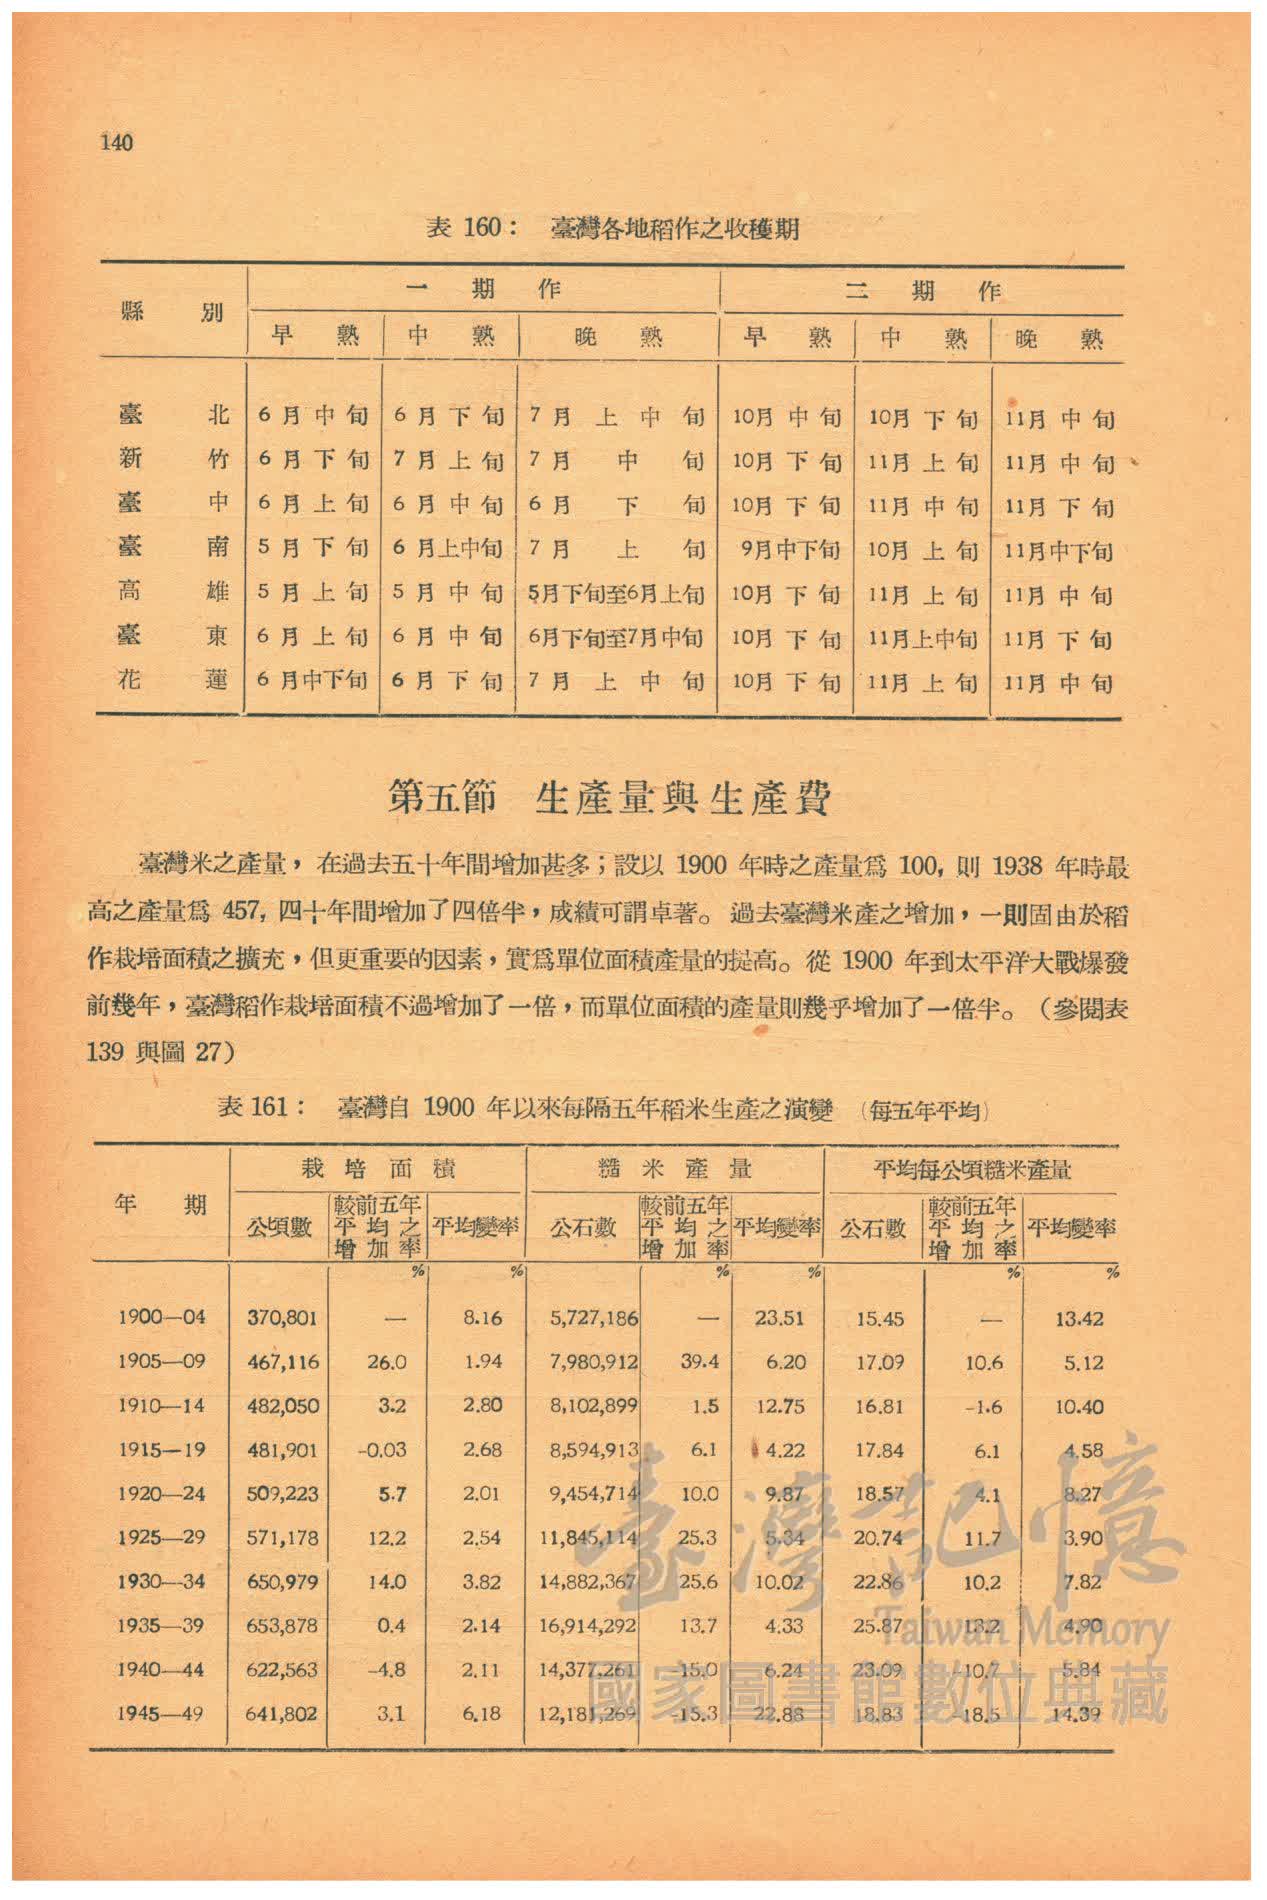 140
表 160： 臺灣各地稻作之收穫期
縣別 一期作 二期作
早熟 中熟 晚熟 早熟 中熟 晚熟
臺北 6月中旬 6月下旬 7月上中旬 10月中旬 10月下旬 11月中旬
新竹 6月下旬 7月上旬 7月中旬 10月下旬 11月上旬 11月中旬
臺中 6月上旬 6月中旬 6月下旬 10月下旬 11月中旬 11月下旬
臺南 5月下旬 6月上中旬 7月上旬 9月中下旬 10月上旬 11月中下旬
高雄 5月上旬 5月中旬 5月下旬至6月上旬 10月下旬 11月上旬 11月中旬
臺東 6月上旬 6月中旬 6月下旬至7月中旬 10月下旬 11月上中旬 11月下旬
花蓮 6月中下旬 6月下旬 7月上中旬 10月下旬 11月上旬 11月中旬
第五節 生產量與生產費
臺灣米之產量，在過去五十年間增加甚多；設以 1900 年時之產量爲 100, 則 1938 年時最
高之產量爲 457, 四十年間增加了四倍半，成績可謂卓著。過去臺灣米產之增加，一則固由於稻
作栽培面積之擴充，但更重要的因素，實爲單位面積產量的提高。從 1900 年到太平洋大戰爆發
前幾年，臺灣稻作栽培面積不過增加了一倍，而單位面積的產量則幾乎增加了一倍半。（參閱表
139 與圖 27）
表 161： 臺灣自 1900 年以來每隔五年稻米生產之演變 （每五年平均）
年期 栽培面積 糙米產量 平均每公頃糙米產量
公頃數 較前五年平均之增加率 平均變率 公石數 較前五年平均之增加率 平均變率 公石數 較前五年平均之增加率 平均變率
% % % % % %
1900—04 370,801 — 8.16 5,727,186 — 23.51 15.45 — 13.42
1905—09 467,116 26.0 1.94 7,980,912 39.4 6.20 17.09 10.6 5.12
1910—14 482,050 3.2 2.80 8,102,899 1.5 12.75 16.81 -1.6 10.40
1915—19 481,901 -0.03 2.68 8,594,913 6.1 4.22 17.84 6.1 4.58
1920—24 509,223 5.7 2.01 9,454,714 10.0 9.87 18.57 4.1 8.27
1925—29 571,178 12.2 2.54 11,845,114 25.3 5.34 20.74 11.7 3.90
1930—34 650,979 14.0 3.82 14,882,367 25.6 10.02 22.86 10.2 7.82
1935—39 653,878 0.4 2.14 16,914,292 13.7 4.33 25.87 13.2 4.90
1940—44 622,563 -4.8 2.11 14,377,261 -15.0 6.24 23.09 -10.7 5.84
1945—49 641,802 3.1 6.18 12,181,269 -15.3 22.88 18.83 -18.5 14.39
臺灣記憶
Taiwan Memory
國家圖書館數位典藏